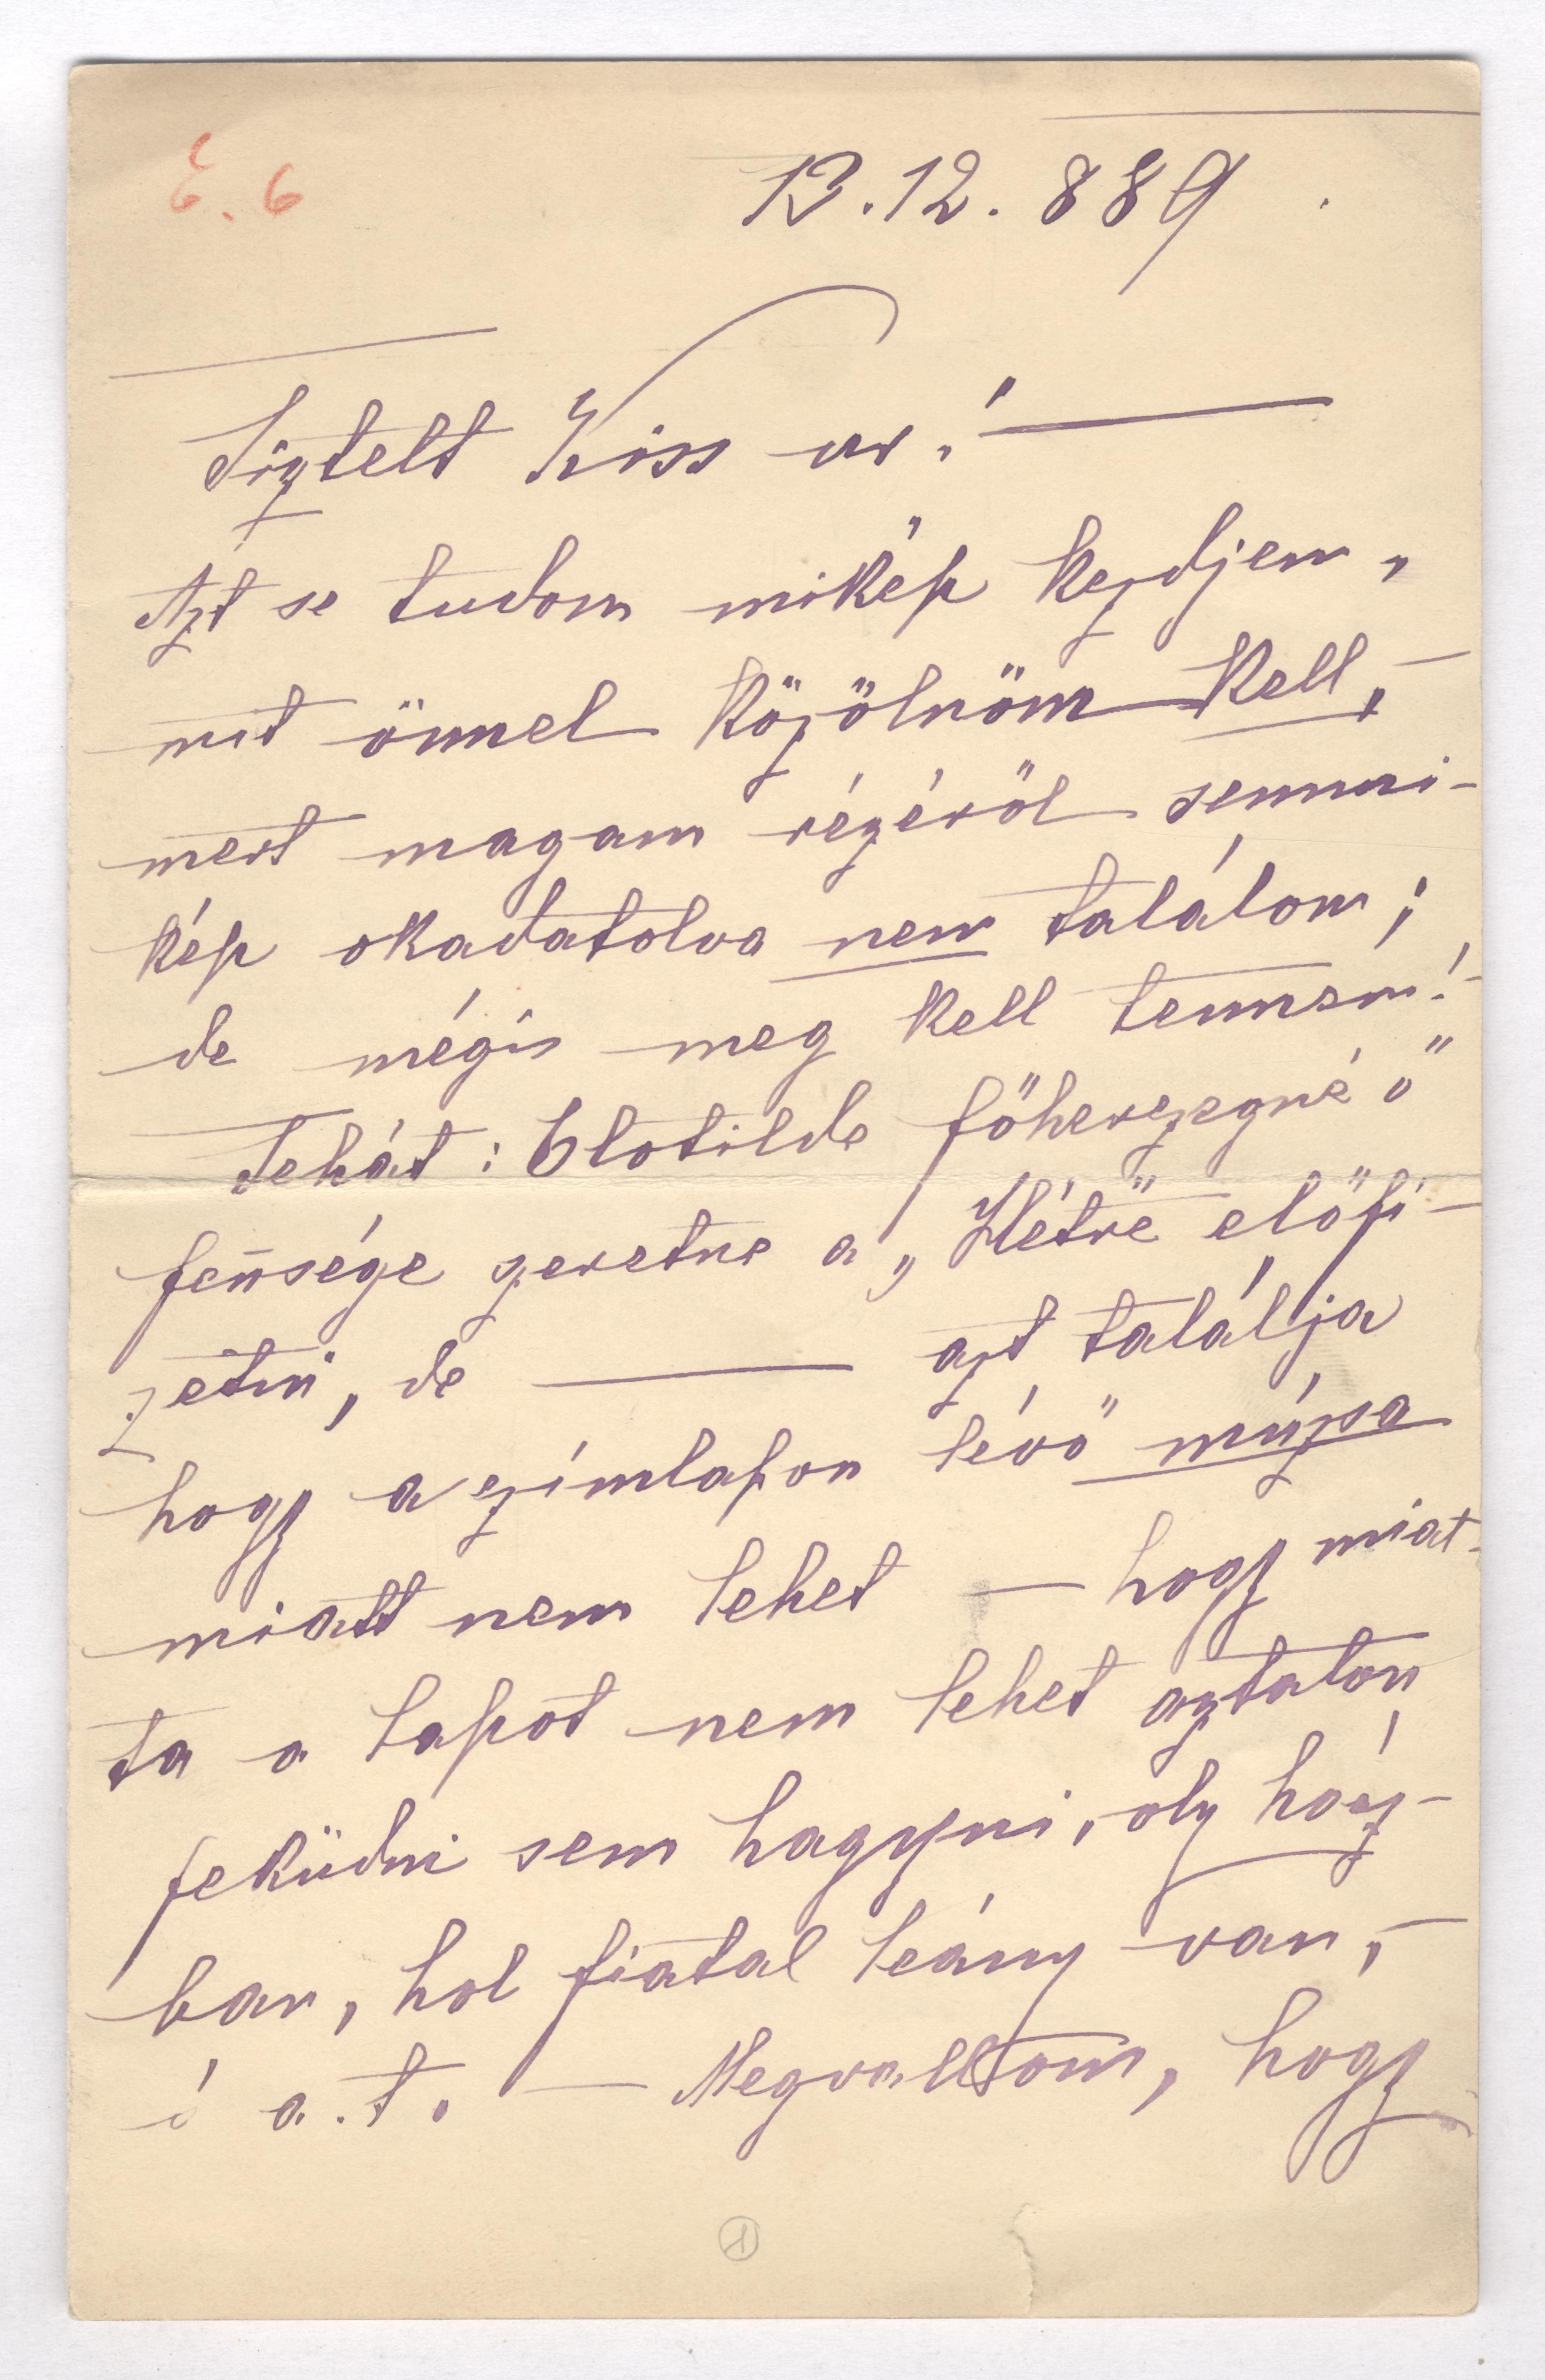 É. 6
13.12.889.
Tisztelt Kiss úr! —
Azt se tudom mikép kezdjem,
mit önnel közölnöm kell, —
mert magam részéröl semmi-
kép okadatolva nem találom;
de mégis meg kell tennem! —
Tehát: Clotilde föherczegnö ö"
fensége szeretne a „Hétre" elöfi-
zetni, de — azt találja
hogy a czímlapon lévö múzsa
miatt nem lehet — hogy miat-
ta a lapot nem lehet asztalon
feküdni sem hagyni, oly ház-
ban, hol fiatal leány van, —
s a. t. — Megvallom, hogy
1